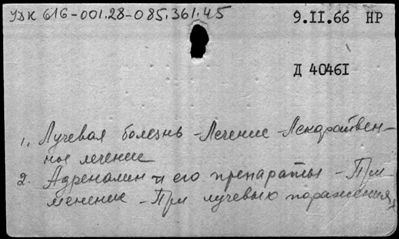 УДК 616-001.28-085.361.45
9.II.66 НР
Д 40461
1. Лучевая болезнь - Лечение - Лекарствен-
ное лечение
2. Адреналин и его препараты - При-
менение - При лучевых поражениях